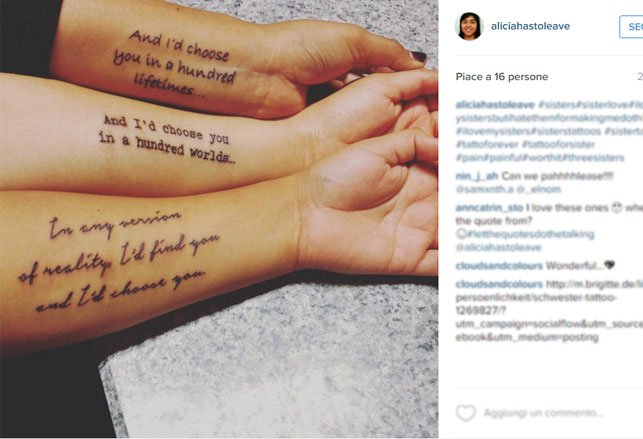 And I'd choose
you in a hundred
lifetimes...
And I'd choose you
in a hundred worlds...
In any version
of reality, I'd find you
and I'd choose you.
aliciahastoleave
SE
Piace a 16 persone
2
aliciahastoleave #sisters#sisterlove#ilo
ysistersbutihatethemformakingmedothi
#ilovemysisters#sisterstattoos #sisterta
#tattoforever #tattooforsister
#pain#painful#worthit#threesisters
nin_j_ah Can we pahhhhlease!!!!
@samxnth.a @_elnom
anncatrin_sto I love these ones whe
the quote from?
#letthequotesdothetalking
@aliciahastoleave
cloudsandcolours Wonderful...
cloudsandcolours http://m.brigitte.de/li
persoenlichkeit/schwester-tattoo-
1269827/?
utm_campaign=socialflow&utm_source
ebook&utm_medium=posting
Aggiungi un commento...